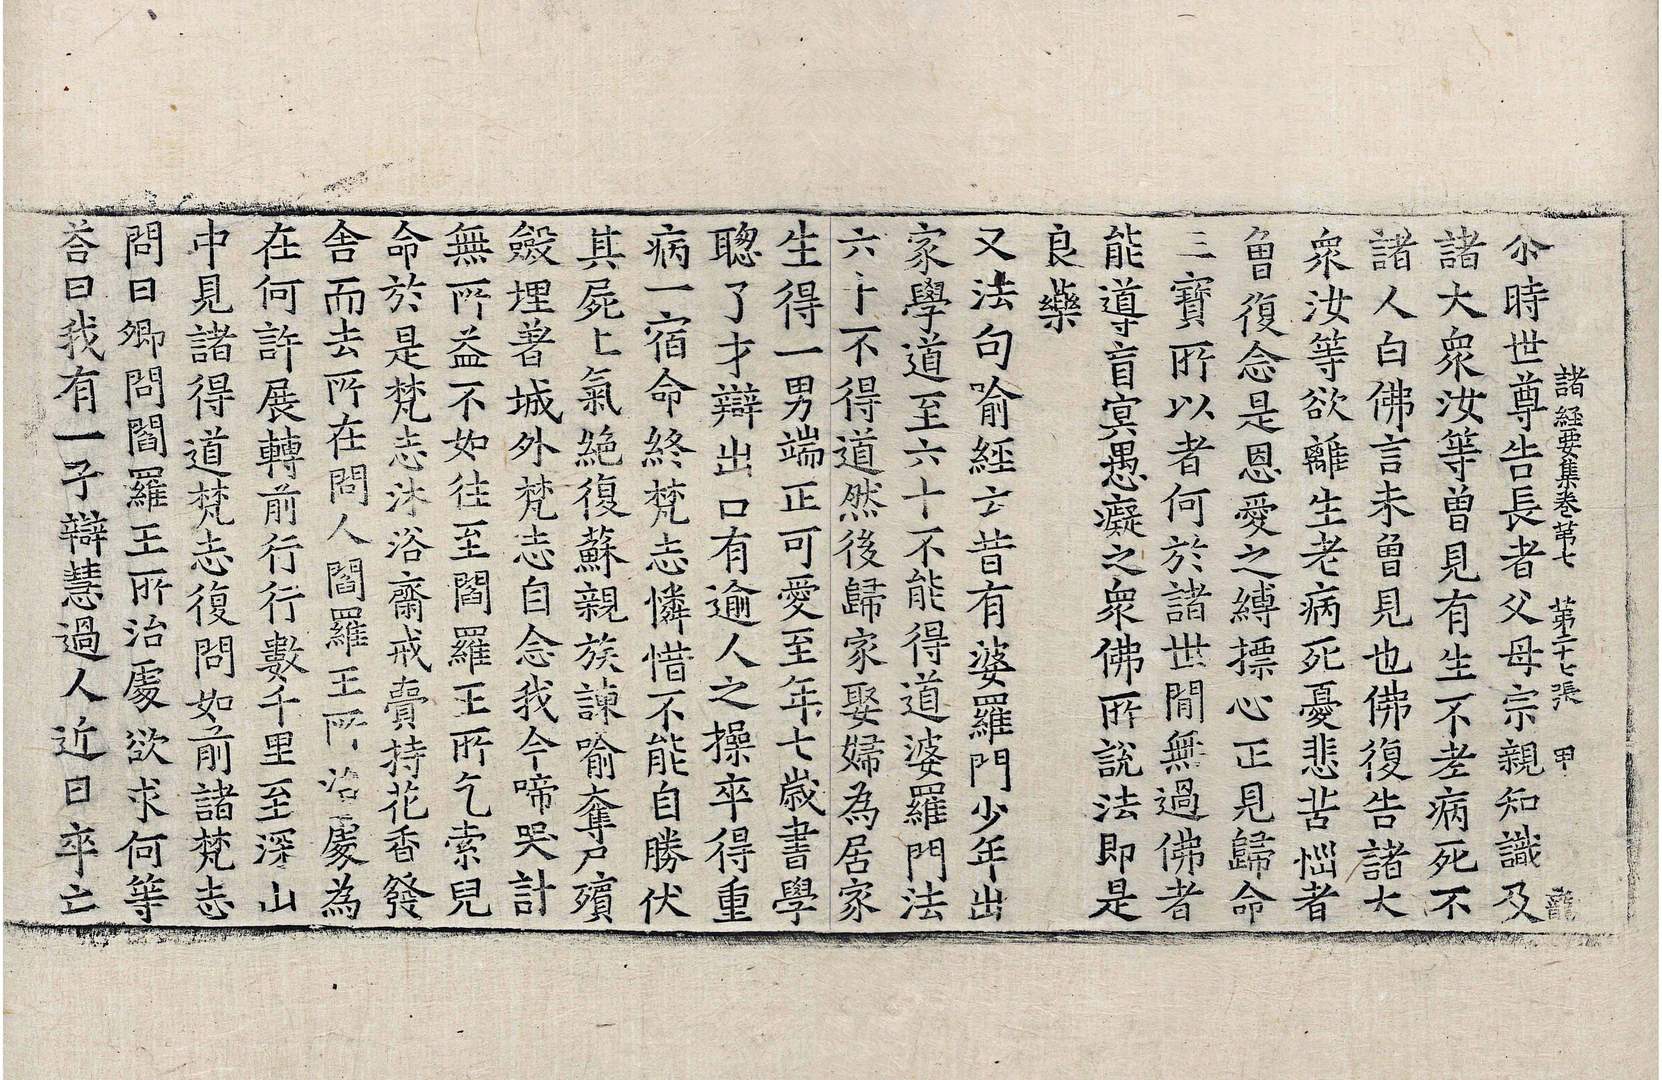 諸經要集卷第七　第二十七張　甲　龍
尒時世尊告長者父母宗親知識及
諸大衆汝等曽見有生不老病死不
諸人白佛言未曽見也佛復告諸大
衆汝等欲離生老病死憂悲苦惱者
曽復念是恩愛之縛摽心正見歸命
三寶所以者何於諸世間無過佛者
能導盲冥愚癡之衆佛所說法即是
良藥
又法句喻經云昔有婆羅門少年出
家學道至六十不能得道婆羅門法
六十不得道然後歸家娶婦為居家
生得一男端正可愛至年七歲書學
聰了才辯出口有逾人之操卒得重
病一宿命終梵志憐惜不能自勝伏
其屍上氣絕復蘇親族諫喻奪尸殯
斂埋著城外梵志自念我今啼哭計
無所益不如往至閻羅王所乞索兒
命於是梵志沐浴齋戒賷持花香發
舍而去所在問人閻羅王所治處為
在何許展轉前行行數千里至深山
中見諸得道梵志復問如前諸梵志
問曰卿問閻羅王所治處欲求何等
荅曰我有一子辯慧過人近日卒亡